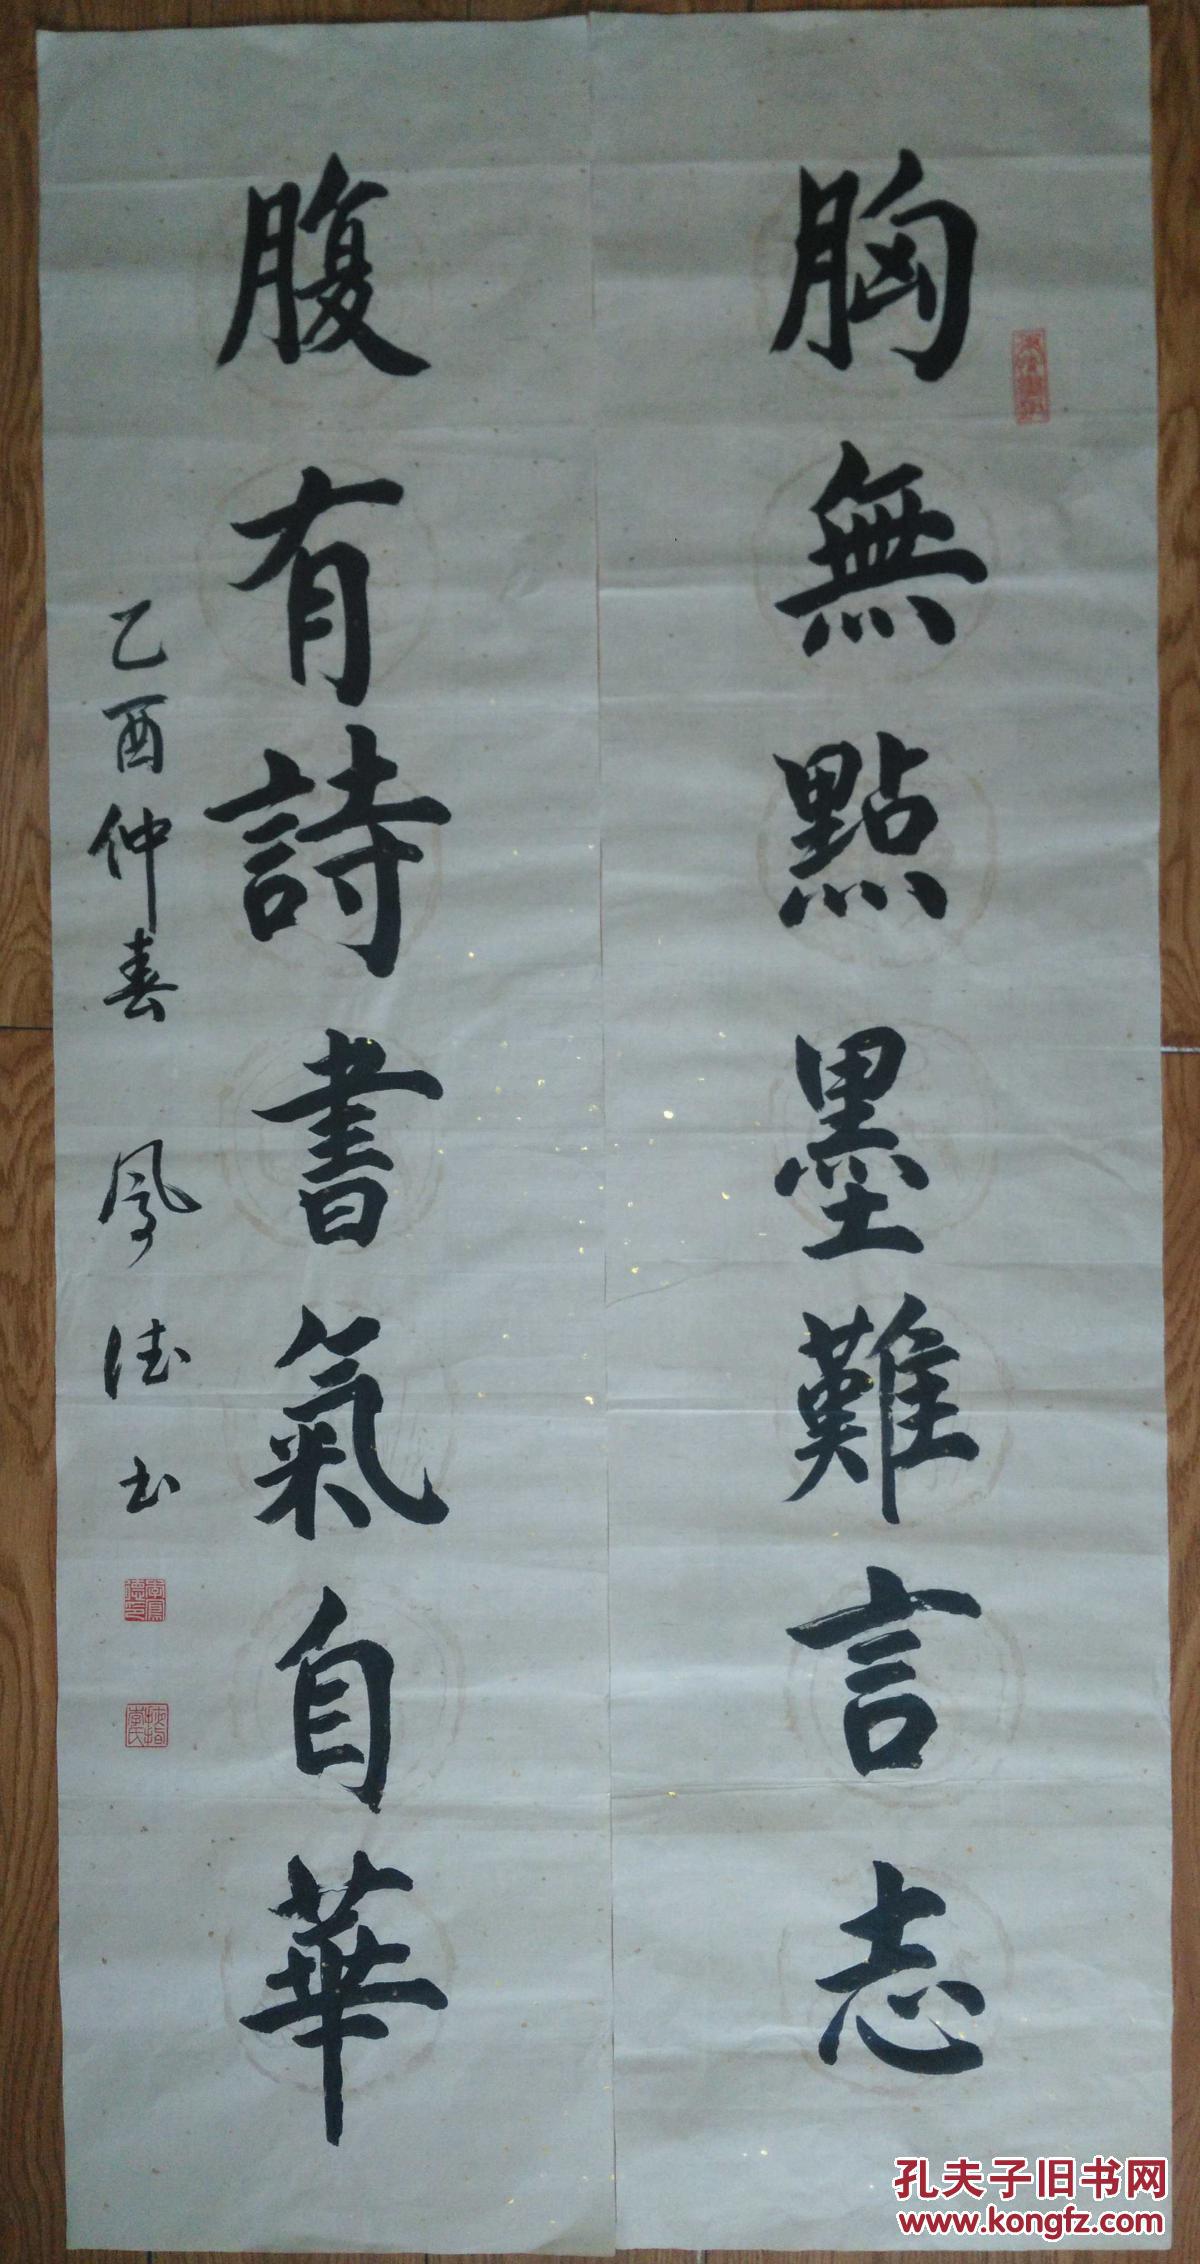 胸無點墨難言志
腹有詩書氣自華
乙酉仲春 鳳德书
李鳳德印
孔夫子旧书网
www.kongfz.com